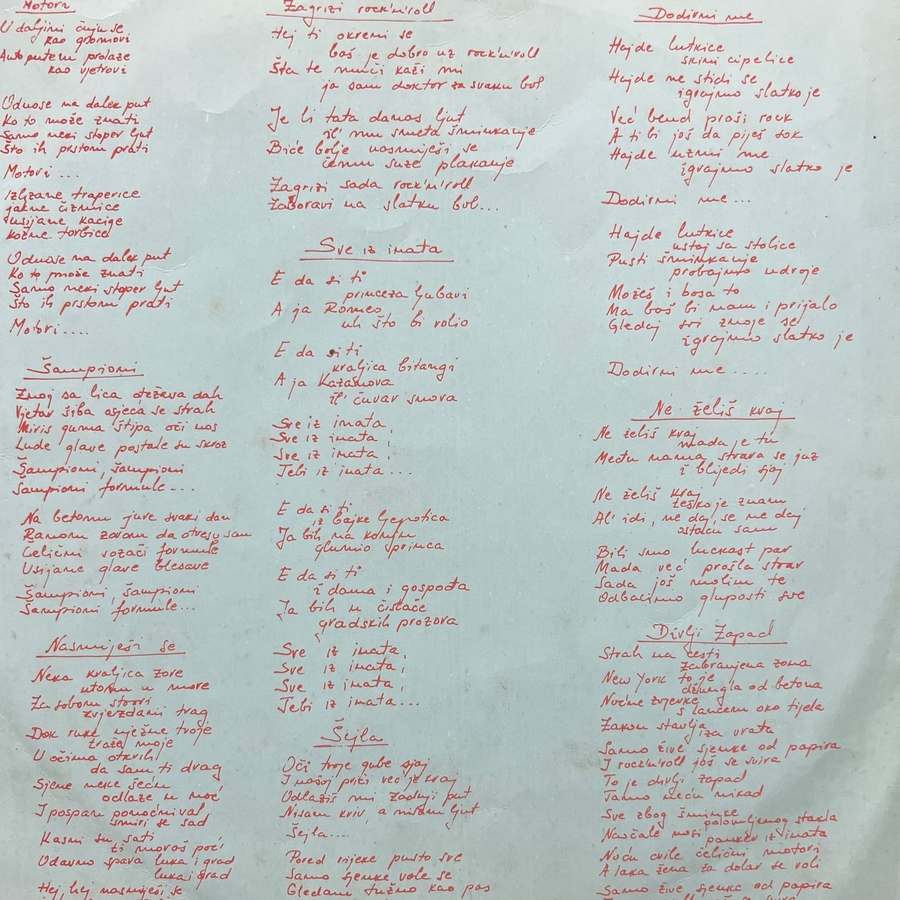 Motori
U daljini čuju se
kao gromovi
Autoputem prolaze
kao vjetrovi
Odnose na dalek put
Ko to može znati
Samo neki stoper ljut
Što ih prstom prati
Motori ...
Izlizane traperice
jakne čizmice
usijane kacige
kožne torbice
Odnose na dalek put
Ko to može znati
Samo neki stoper ljut
Što ih prstom prati
Motori ....
Šampioni
Znoj sa lica otežava dah
Vjetar šiba osjeća se strah
Miris guma štipa oči nos
Lude glave postale su skroz
Šampioni, šampioni
Šampioni formule...
Na betonu jure svaki dan
Ranom zorom da otresu san
Čelični vozači formule
Usijane glave blesave
Šampioni, šampioni
Šampioni formule...
Nasmiješi se
Neka kraljica zore
utonu u more
Za sobom stvori
zvjezdani trag
Dok ruke nježne tvoje
traže moje
U očima otkrih
da sam ti drag
Sjene neke šeću
odlaze u noć
I pospan ponoćni val
smiri se sad
Kasni su sati
ti moraš poć
Odavno spava luka i grad
luka i grad
Hej, hej nasmiješi se
Zagrizi rock'n'roll
Hej ti okreni se
baš je dobro uz rock'n'roll
Šta te muči kaži mi
ja sam doktor za svaku bol
Je li tata danas ljut
il' mu smeta šminkanje
Biće bolje nasmiješi se
čemu suze plakanje
Zagrizi sada rock'n'roll
Zaboravi na slatku bol...
Sve iz inata
E da si ti
princeza ljubavi
A ja Romeo
uh što bi volio
E da si ti
kraljica bitangi
A ja Kazanova
il' čuvar snova
Sve iz inata,
Sve iz inata,
Sve iz inata,
Tebi iz inata...
E da si ti
iz bajke ljepotica
Ja bih na konju
glumio princa
E da si ti
i dama i gospođa
Ja bih u čistače
gradskih prozora
Sve iz inata,
Sve iz inata,
Sve iz inata,
Tebi iz inata...
Šejla
Oči tvoje gube sjaj
I našoj priči već je kraj
Odlaziš mi zadnji put
Nisam kriv, a nisam ljut
Šejla...
Pored rijeke pusto sve
Samo sjenke vole se
Gledam tužno kao pas
Dodirni me
Hajde lutkice
skini cipelice
Hajde ne stidi se
igrajmo slatko je
Već bend praši rock
A ti bi još da piješ sok
Hajde uzmi me
igrajmo slatko je
Dodirni me...
Hajde lutkice
ustaj sa stolice
Pusti šminkanje
probajmo udvoje
Možeš i bosa to
Ma baš bi nam i prijalo
Gledaj svi znoje se
igrajmo slatko je
Dodirni me ....
Ne želiš kraj
Ne želiš kraj
mada je tu
Među nama strava se
i blijedi sjaj
Ne želiš kraj
teško je znam
Al' idi, ne daj se ne daj
ostaću sam
Bili smo luckast par
Mada već prošla stvar
Sada još molim te
Odbacimo gluposti sve
Divlji Zapad
Strah na cesti
zabranjena zona
New York to je
džungla od betona
Noćne zvjerke
s lancem oko tijela
Zakon stavlja
za vrata
Samo žive sjenke od papira
I rock'n'roll još se svira
To je divlji zapad
Tamo neću nikad
Sve zbog šminke
polomljenog stakla
Naočale nosi
panker iz inata
Noću cvile čelični motori
A laka žena za dolar se voli
Samo žive sjenke od papira